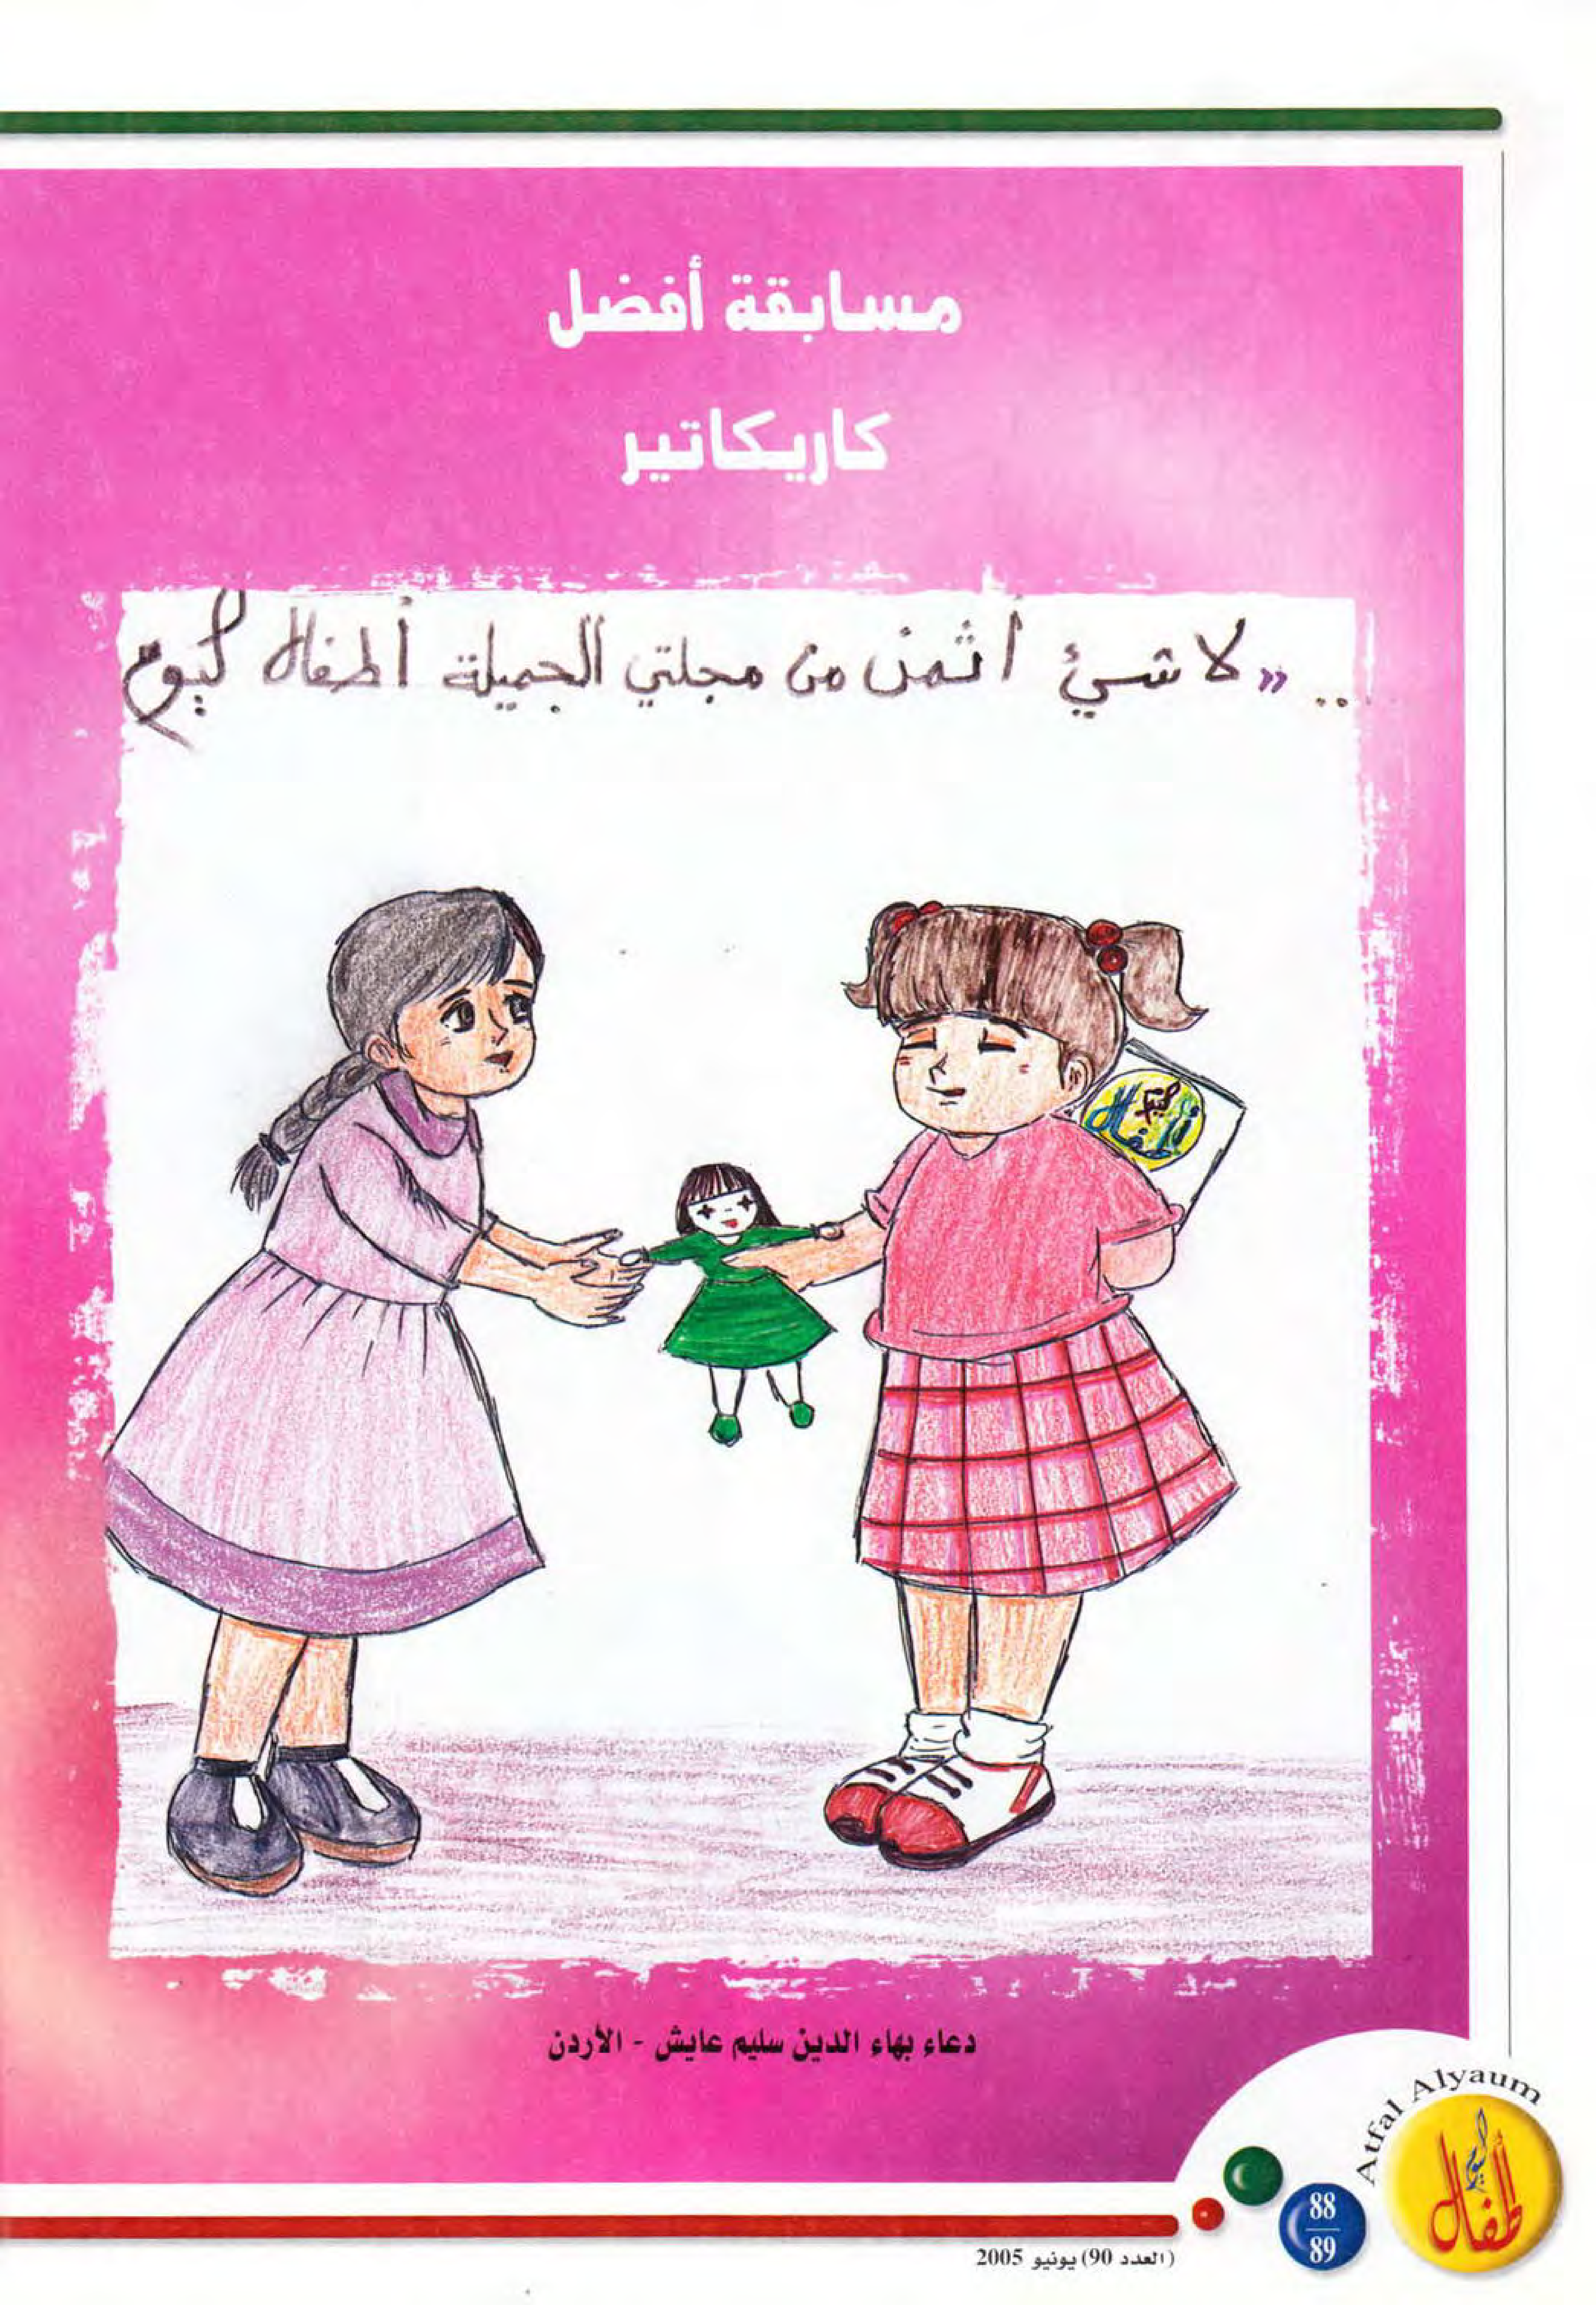 مسابقة أفضل
كاريكاتير
.. «لا شيئ أثمن من مجلتي الجميلة أطفال ليوم
أطفال اليوم
دعاء بهاء الدين سليم عايش - الأردن
Atfal Alyaum
أطفال اليوم
88
89
(العدد 90) يونيو 2005